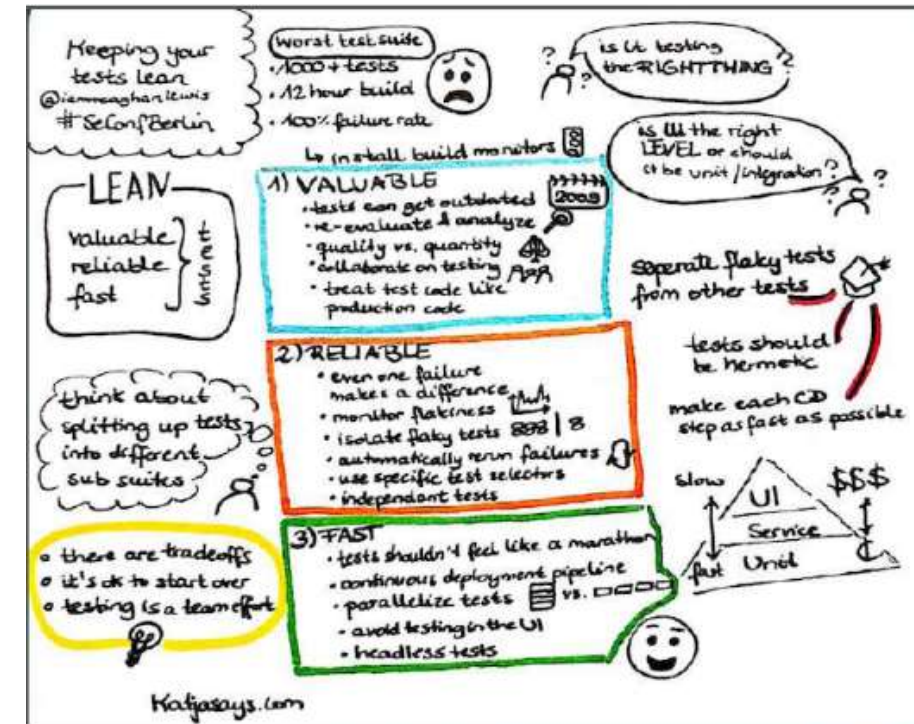 Keeping your
tests lean
@iammeaghanlewis
#SeConfBerlin
worst test suite
• 1000+ tests
• 12 hour build
• 100% failure rate
↳ install build monitors
is it testing
the RIGHT THING
?
?
?
?
is UI the right
LEVEL or should
it be unit/integration?
?
?
?
LEAN
valuable
reliable
fast
tests
1) VALUABLE
2009
• tests can get outdated
• re-evaluate & analyze
• quality vs. quantity
• collaborate on testing
• treat test code like
production code
seperate flaky tests
from other tests
tests should
be hermetic
make each CD
step as fast as possible
2) RELIABLE
• even one failure
makes a difference
• monitor flakiness
• isolate flaky tests 888 | 8
• automatically rerun failures
• use specific test selectors
• independant tests
think about
splitting up tests
into different
sub suites
slow
fast
UI
Service
Unit
$$$
¢
3) FAST
• tests shouldn't feel like a marathon
• continuous deployment pipeline
• parallelize tests
vs.
• avoid testing in the UI
• headless tests
• there are tradeoffs
• it's ok to start over
• testing is a team effort
Katjasays.com